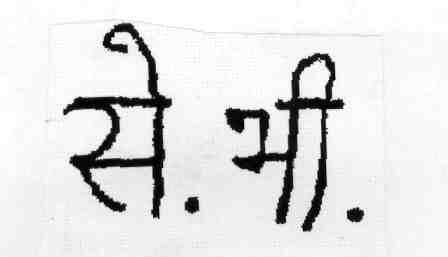 से. भी.